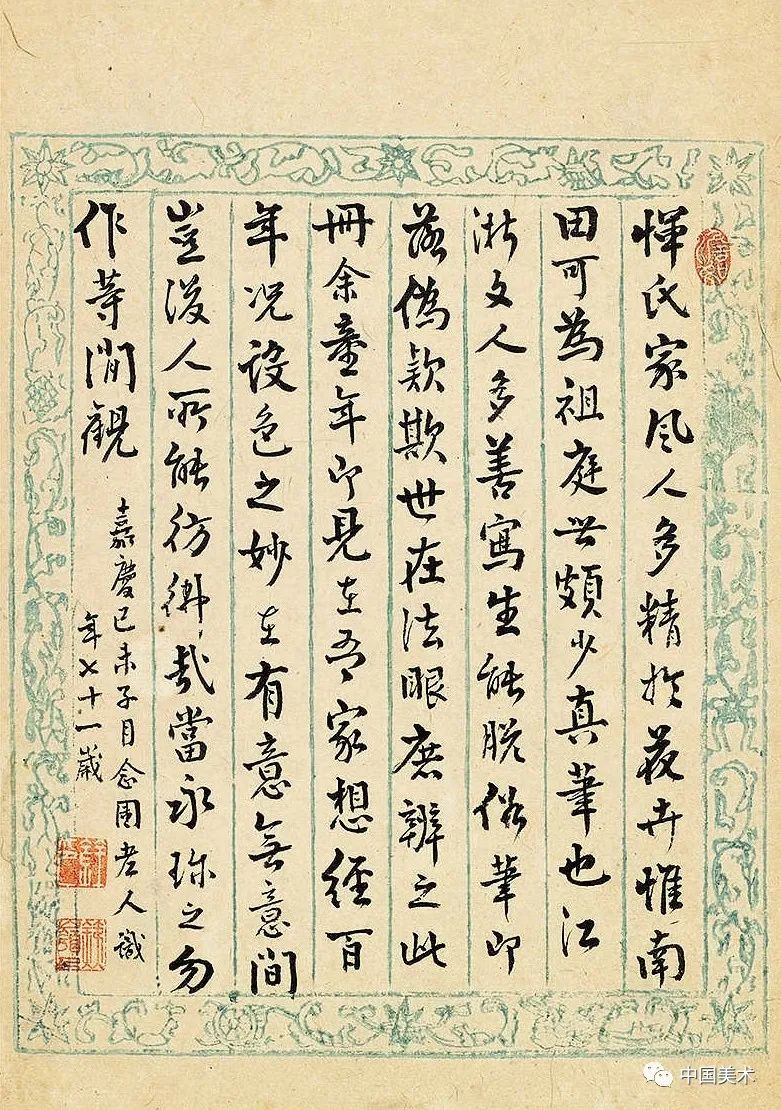 惲氏家風人多精於花卉惟南
田可為祖庭世頗少真筆也江
淅文人多善寫生能脫俗筆即
落偽欵欺世在法眼庶辨之此
冊余童年即見在吾家想經百
年况設色之妙在有意無意間
豈後人所能彷彿哉當永珎之勿
作等閒觀
嘉慶己未子月念圃老人識
年七十一歲
中国美术